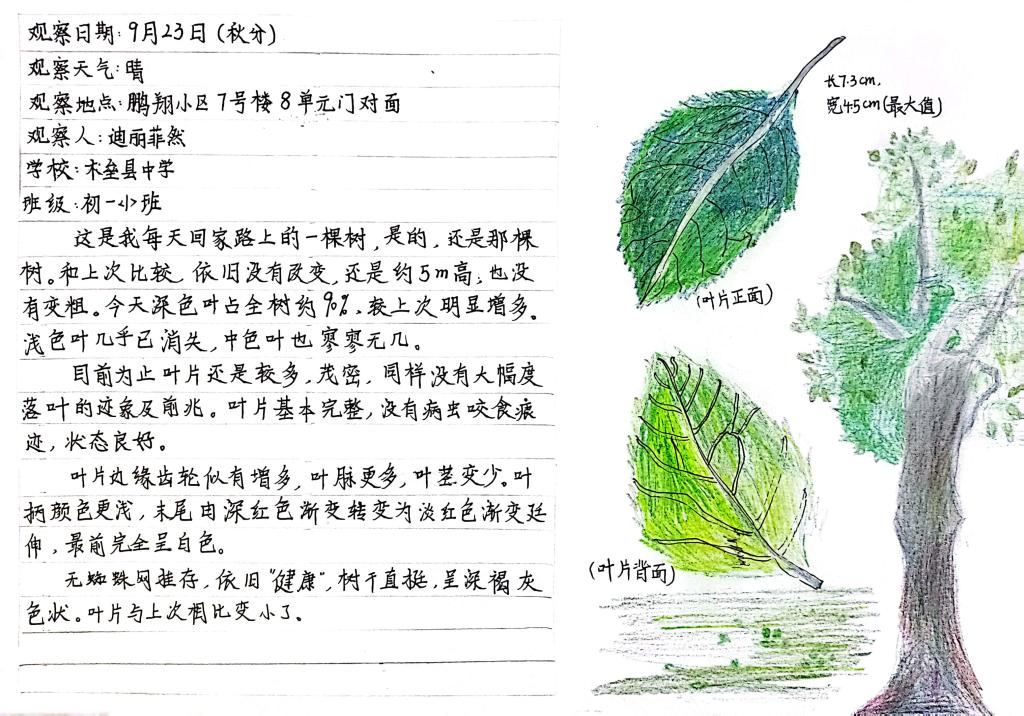 观察日期:9月23日(秋分)
观察天气:晴
观察地点:鹏翔小区7号楼8单元门对面
观察人:迪丽菲然
学校:木垒县中学
班级:初一小班
这是我每天回家路上的一棵树,是的,还是那棵
树。和上次比较,依旧没有改变,还是约5m高,也没
有变粗。今天深色叶占全树约90%,较上次明显增多。
浅色叶几乎已消失,中色叶也寥寥无几。
目前为止叶片还是较多,茂密,同样没有大幅度
落叶的迹象及前兆。叶片基本完整,没有病虫咬食痕
迹,状态良好。
叶片边缘齿轮似有增多,叶脉更多,叶茎变少。叶
柄颜色更浅,末尾由深红色渐变转变为淡红色渐变延
伸,最前完全呈白色。
无蜘蛛网挂存,依旧"健康",树干直挺,呈深褐灰
色状。叶片与上次相比变小了。
长7.3cm,
宽4.5cm(最大值)
(叶片正面)
(叶片背面)